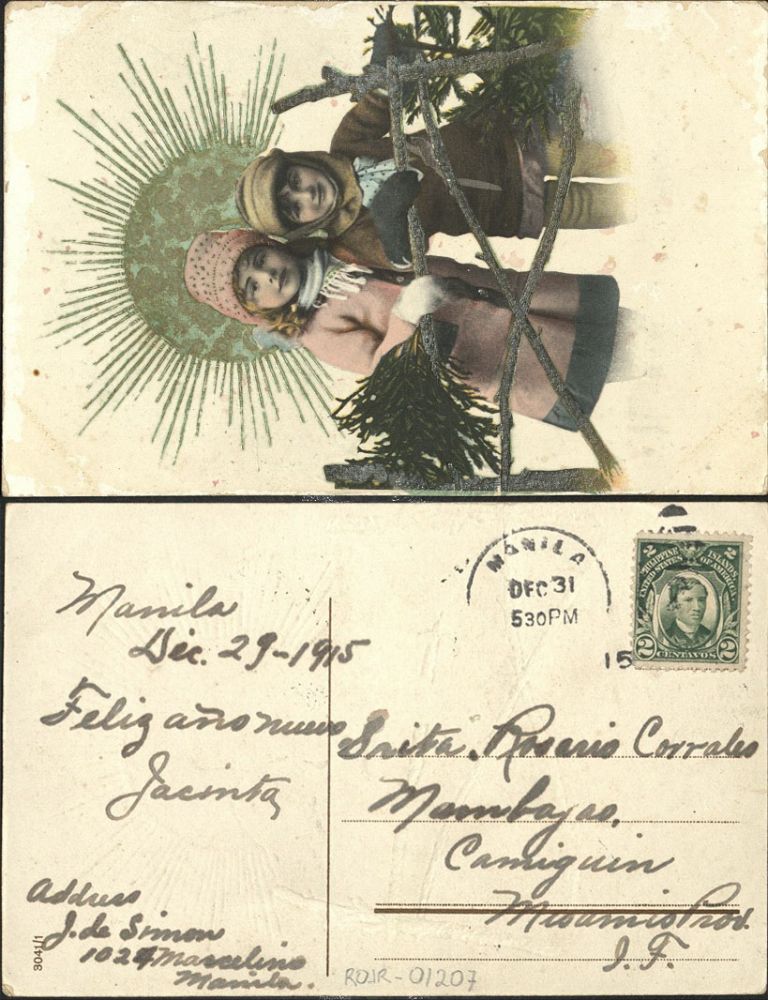 Manila
Dec. 29-1915
Feliz año nuevo
Jacinta
Address
J. de Simon
1024 Marcelino
Manila.
3041/1
MANILA
DEC 31
530PM
15
PHILIPPINE ISLANDS
UNITED STATES OF AMERICA
2 2
2 CENTAVOS 2
Srita. Rosario Corrales
Mambajao,
Camiguin
Misamis Prov.
I. F.
ROJR-01207